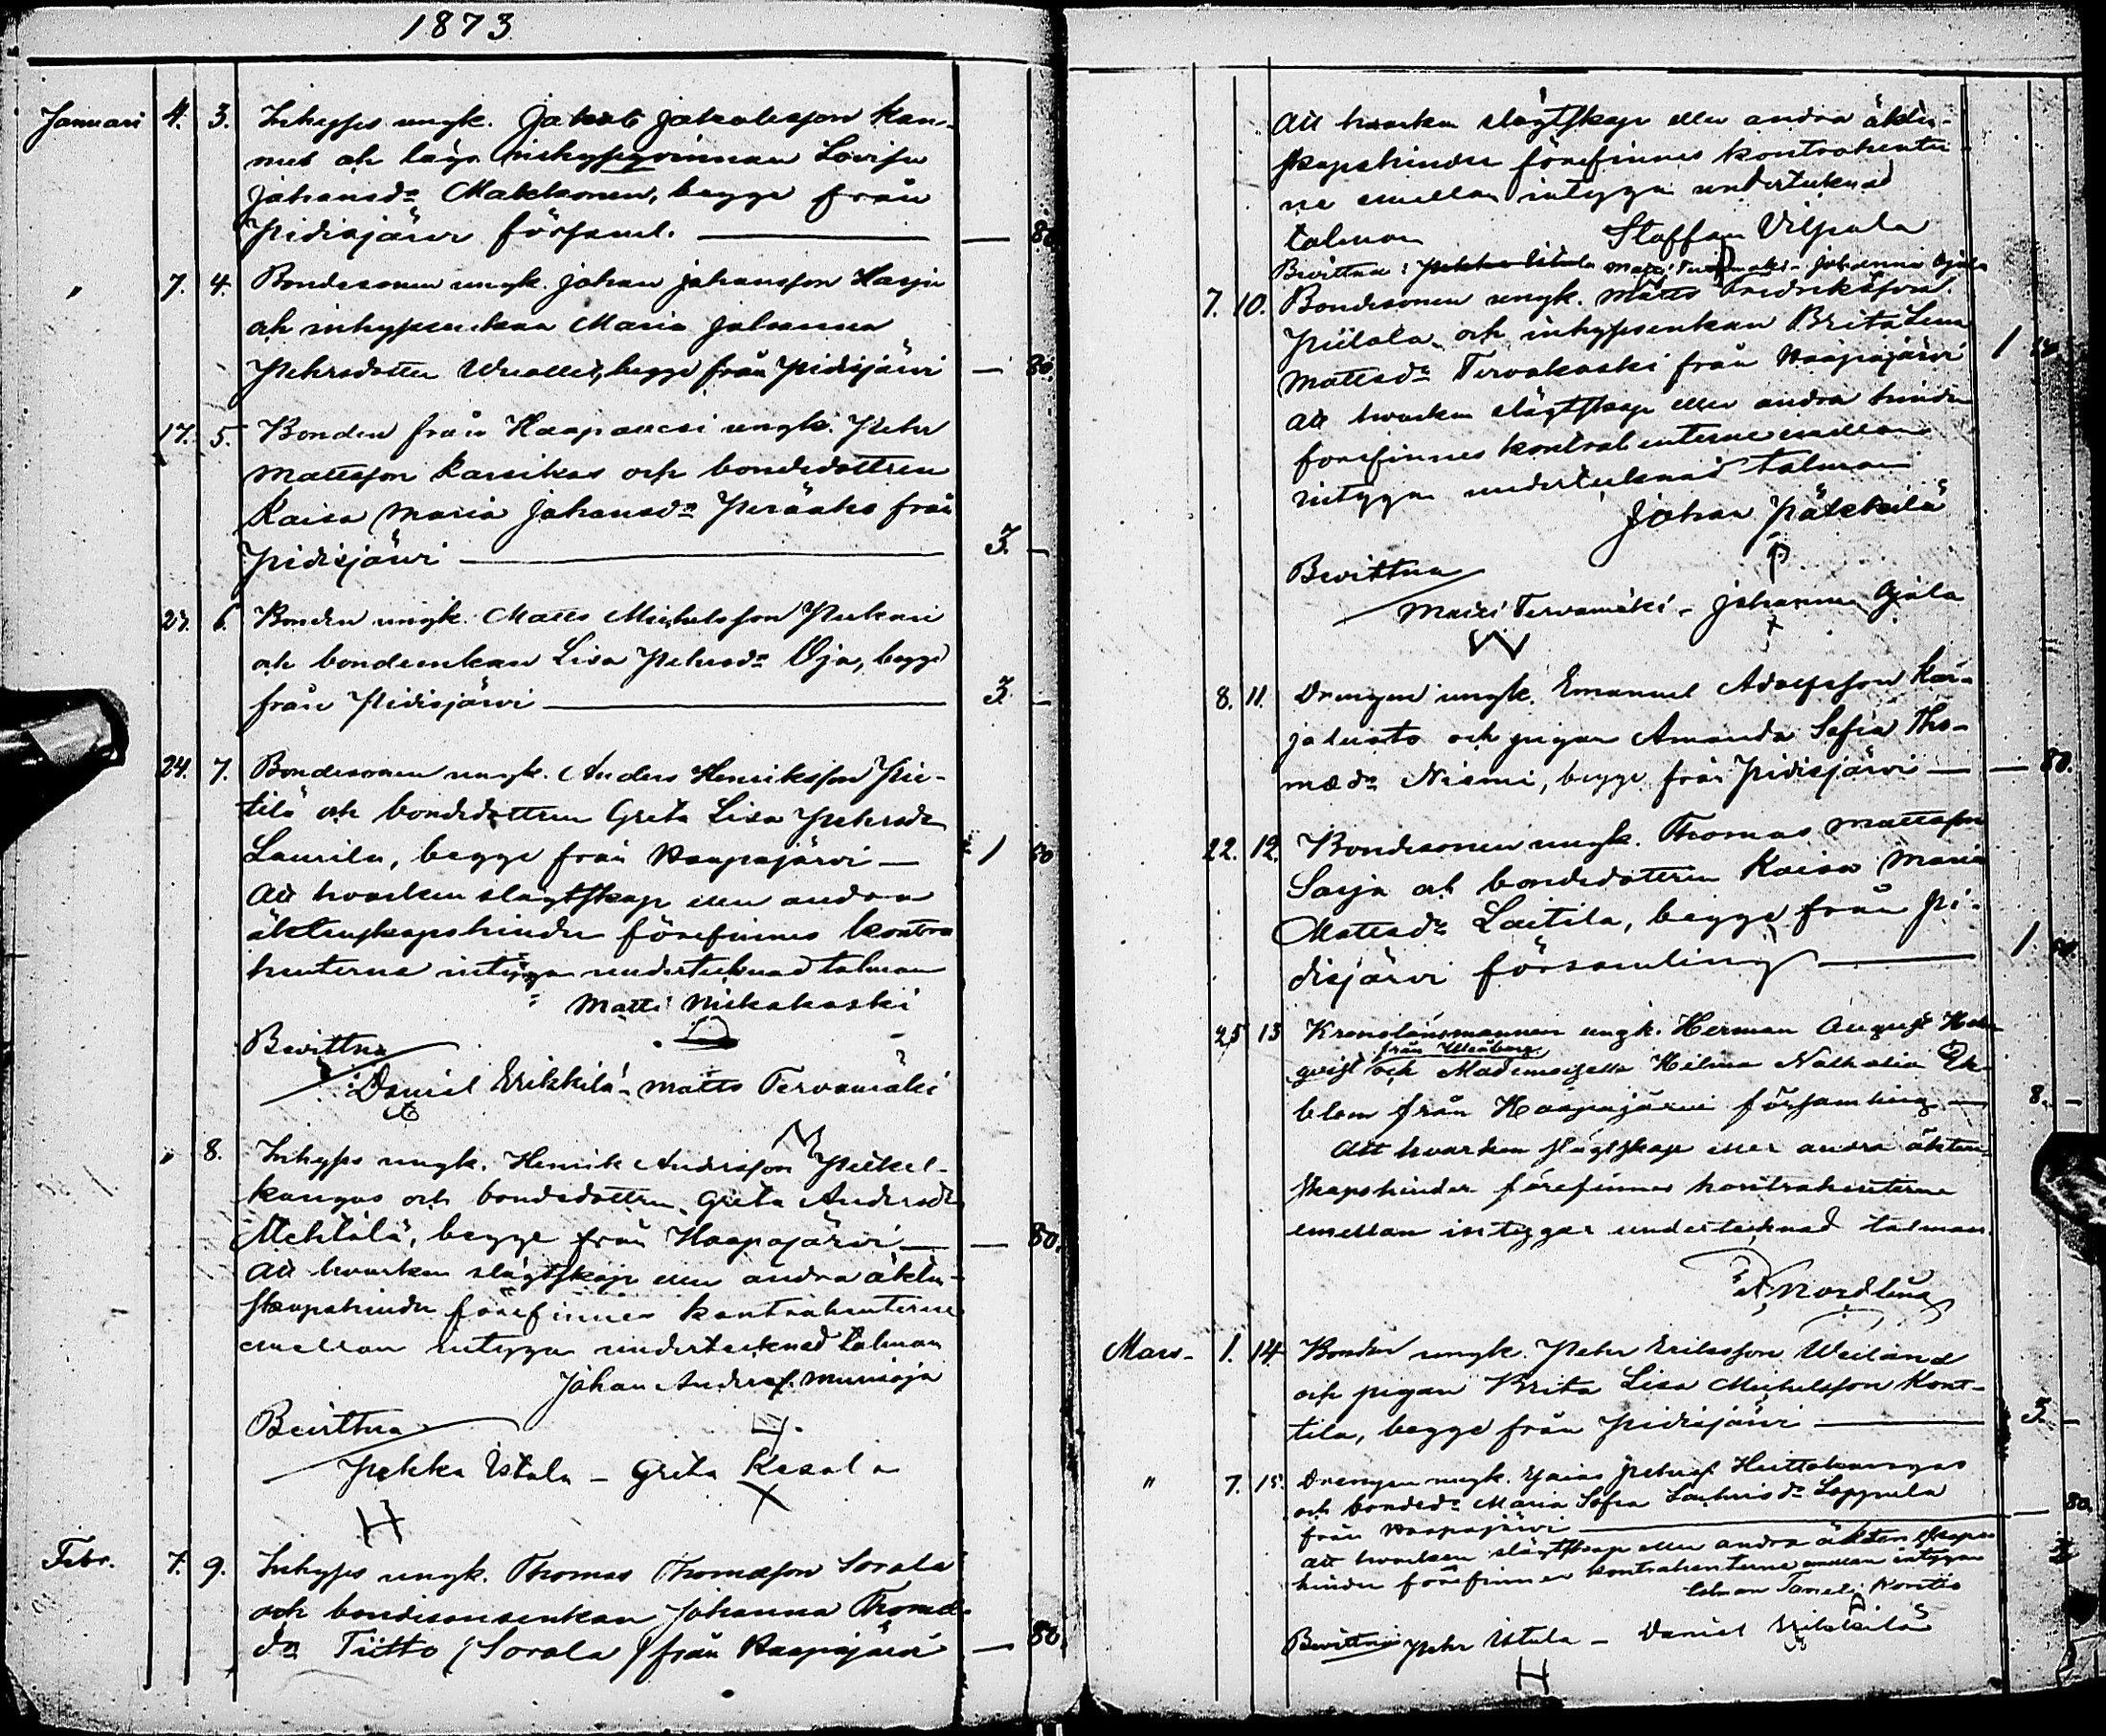 1873
Januari 4. 3. Inhyses ungk. Jakob Jakobsson Kan-
nus och läga inhysesqvinnan Lovisa
Johansdr Makkonen, begge från
Pidisjärvi församl. — — 80
" 7. 4. Bondesonen ungk. Johan Johansson Harju
och inhysesenkan Maria Johanna
Pehrsdotter, begge från Pidisjärvi — 80.
17. 5. Bonden från Haapavesi ungk. Pehr
Mattsson Karsikas och bondedottren
Kaisa Maria Johansdr Peräaho från
Pidisjärvi — 3. —
23. 6. Bonden ungk. Matts Michelsson Pekari
och bondeenkan Lisa Pehrsdr Oja, begge
från Pidisjärvi — 3. —
24. 7. Bondesonen ungk. Anders Henriksson Pie-
tilä och bondedottren Greta Lisa Pehrsdr
Laurila, begge från Haapajärvi — 1 60
Att hvarken slägtskap eller andra
äktenskapshinder förefinnes kontra
henterne intygar undertecknad talman
Matti Niskakoski
Bevittna
Daniel Erikkilä - Matts Tervamäki
" 8. Inhyses ungk. Henrik Andersson Pitkä-
kangas och bondedottren Greta Andersdr
Mehtälä, begge från Haapajärvi — — 80.
Att hvarken slägtskap eller andra äkten-
skapshinder förefinnes kontrahenterne
emellan intygar undertecknad talman
Johan Anderss. Muuroja
Bevittna
Pekka Ustula - Greta Kesola
Febr. 7. 9. Inhyses ungk. Thomas Thomasson Sorala
och bondesonsenkan Johanna Thomæ
dr Tiitto (Sorala) från Haapajärvi — 80
Att hvarken slägtskap eller andra äkten-
skapshinder förefinnes kontrahenter
ne emellan intygar undertecknad
talman Staffan Vilpola
Bevittna: Pekka Ustula Matti Tervamäki - Johanna Ojala
7. 10. Bondesonen ungk. Matts Fredriksson
Piilola och inhysesenkan Brita Lena
Mattsdr Tervakoski från Haapajärvi 1 60
Att hvarken slägtskap eller andra hinder
forefinnes kontrahenterne emellan
intygar undertecknad talman
Johan Pälkkilä
Bevittna
Matti Tervamäki - Johanna Ojala
8. 11. Drengen ungk. Emanuel Adolfsson Kar-
jaluoto och pigan Amanda Sofia Tho-
mædr Niemi, begge från Pidisjärvi — — 80.
22. 12. Bondesonen ungk. Thomas Mattsson
Sarja och bondedottren Kaisa Maria
Mattsdr Laitila, begge från Pi-
disjärvi församling — 1. 60
25 13 Kronolänsmannen ungk. Herman August
från Uleåborg
och Mademoiselle Hilma Nathalia Ek-
blom från Haapajärvi församling — 8. —
Att hvarken slägtskap eller andra äkten-
skapshinder förefinnes kontrahenterne
emellan intygar undertecknad talman.
Nordlund
Mars - 1. 14 Bonden ungk. Pehr Eriksson Weiland
och pigan Brita Lisa Michelsson Kont-
tila, begge från Pidisjärvi — 3. —
" 7. 15. Drengen ungk. Esaias Pehrss. Hiittakangas
och bondedr Maria Sofia Zachrisdr Loppula
från Haapajärvi — 80.
att hvarken slägtskap eller andra äktenskaps
hinder förefinnes kontrahenterne emellan intygar
talman Taneli
Bevittna Pehr Ustula - Daniel Erikkilä